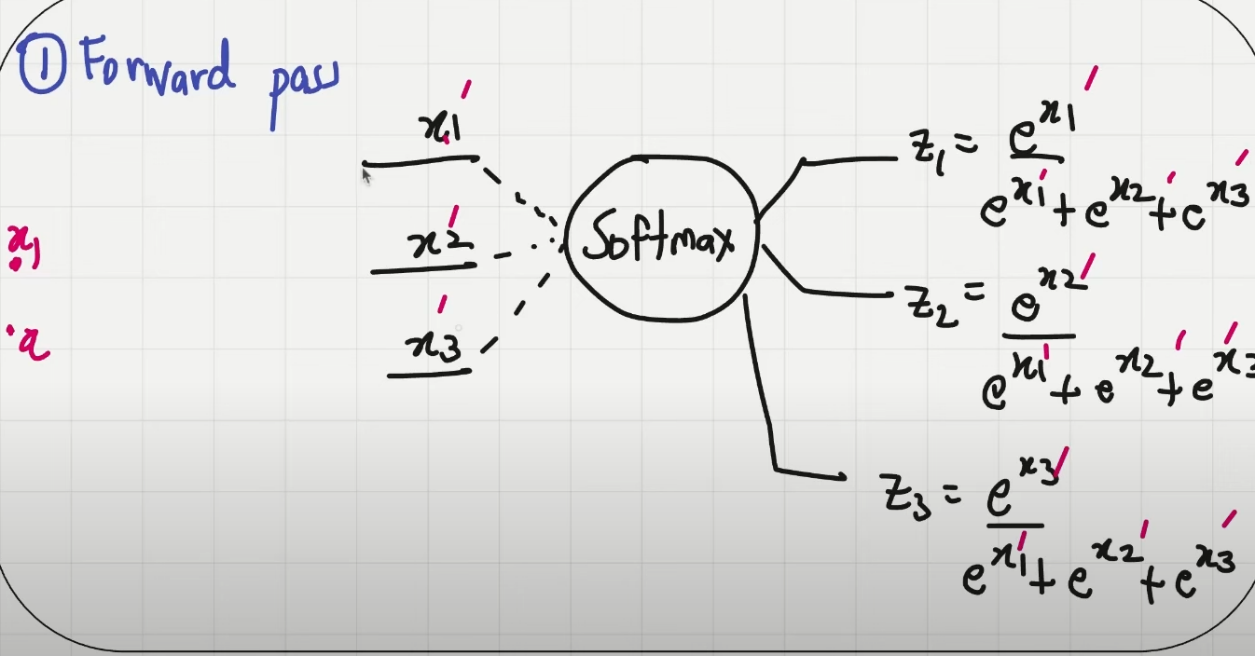 ① Forward pass
x1′
x2′
x3′
x1
x2
Softmax
z1 = e^x1′ / e^x1′ + e^x2′ + e^x3′
z2 = e^x2′ / e^x1′ + e^x2′ + e^x3′
z3 = e^x3′ / e^x1′ + e^x2′ + e^x3′